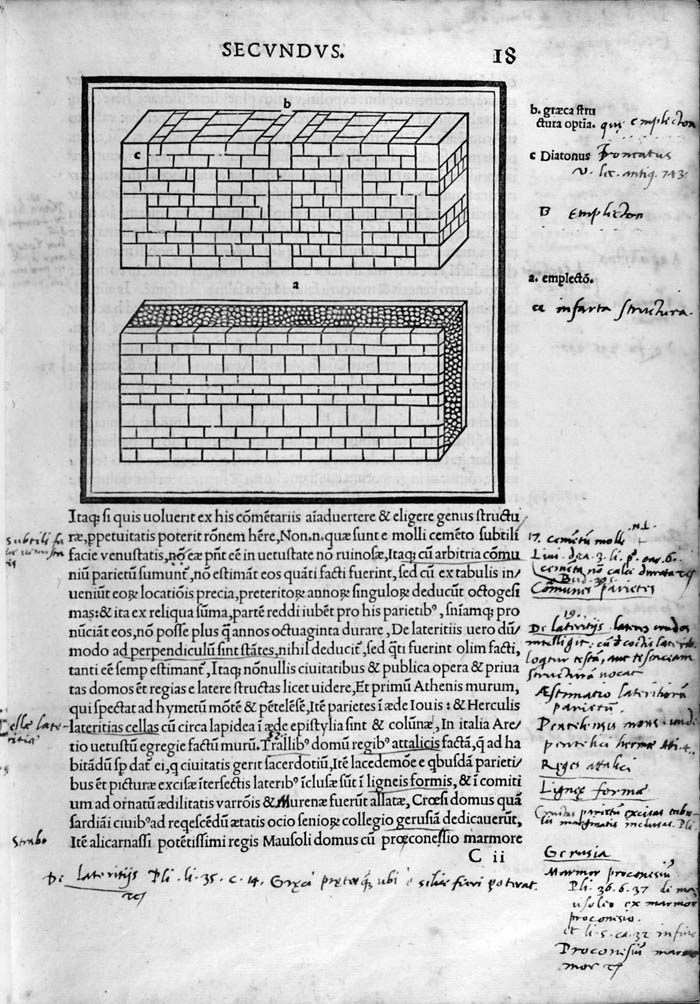 SECVNDVS.
18
b
c
b. græca stru
ctura optĩa. quę emplecton
c Diatonus Frontatus
v. lec. antiq. 743
B Emplecton
a
a. emplectõ.
a infarta structura.
Itaq; si quis uoluerit ex his cõmẽtariis aĩaduertere & eligere genus structu
ræ, ppetuitatis poterit rõnem hẽre, Non.n. quæ sunt e molli cemẽto subtili
facie venustatis, nõ eæ pñt eẽ in uetustate nõ ruinosæ, Itaq; cũ arbitria cõmu
niũ parietũ sumunt̃, nõ estimãt eos quãti facti fuerint, sed cũ ex tabulis in/
ueniũt eoꝝ locatiõis precia, preteritoꝝ annoꝝ singuloꝝ deducũt octogesi
mas: & ita ex reliqua sũma, partẽ reddi iubẽt pro his parietibꝰ, sñiamq; pro
nũciãt eos, nõ posse plus q̃ annos octuaginta durare, De lateritiis uero dũ/
modo ad perpendiculũ sint stãtes, nihil deducit̃, sed q̃ti fuerint olim facti,
tanti eẽ semp estimant̃, Itaq; nõnullis ciuitatibus & publica opera & priua
tas domos ẽt regias e latere structas licet uidere, Et primũ Athenis murum,
qui spectat ad hymetũ mõtẽ & pẽtelẽsẽ, Itẽ parietes ĩ æde Iouis: & Herculis
lateritias cellas cũ circa lapidea ĩ æde epistylia sint & colũnæ, In italia Are/
tio uetustũ egregie factũ murũ. Trallibꝰ domũ regibꝰ attalicis factã, q̃ ad ha
bitãdũ sp dat̃ ei, q ciuitatis gerit sacerdotiũ, Itẽ lacedemõe e qbusdã parieti/
bus ẽt picturæ excisæ ĩtersectis lateribꝰ ĩclusæ sũt ĩ ligneis formis, & ĩ comiti
um ad ornatũ ædilitatis varrõis & Murenæ fuerũt allatæ, Crœsi domus quã
sardiãi ciuibꝰ ad reqescẽdũ ætatis ocio senioꝝ collegio gerusiã dedicauerũt,
Itẽ alicarnassi potẽtissimi regis Mausoli domus cũ proeconessio marmore
C ii
17. cemẽtũ molli
Communes parietes
19.
De lateritijs
structurã vocat
Æstimatio lateritiorũ
parietum.
Reges attalici
Ligneę formę
Gerusia
Marmor proconesiũ
Pli. 36. 6. 37 de ma
usoleo ex marmor
proconisio.
Proconisiũ marmor
Strabo
De lateritijs Pli. li. 35. c. 14. Gręci pręterq̃ ubi e silice fieri poterat.